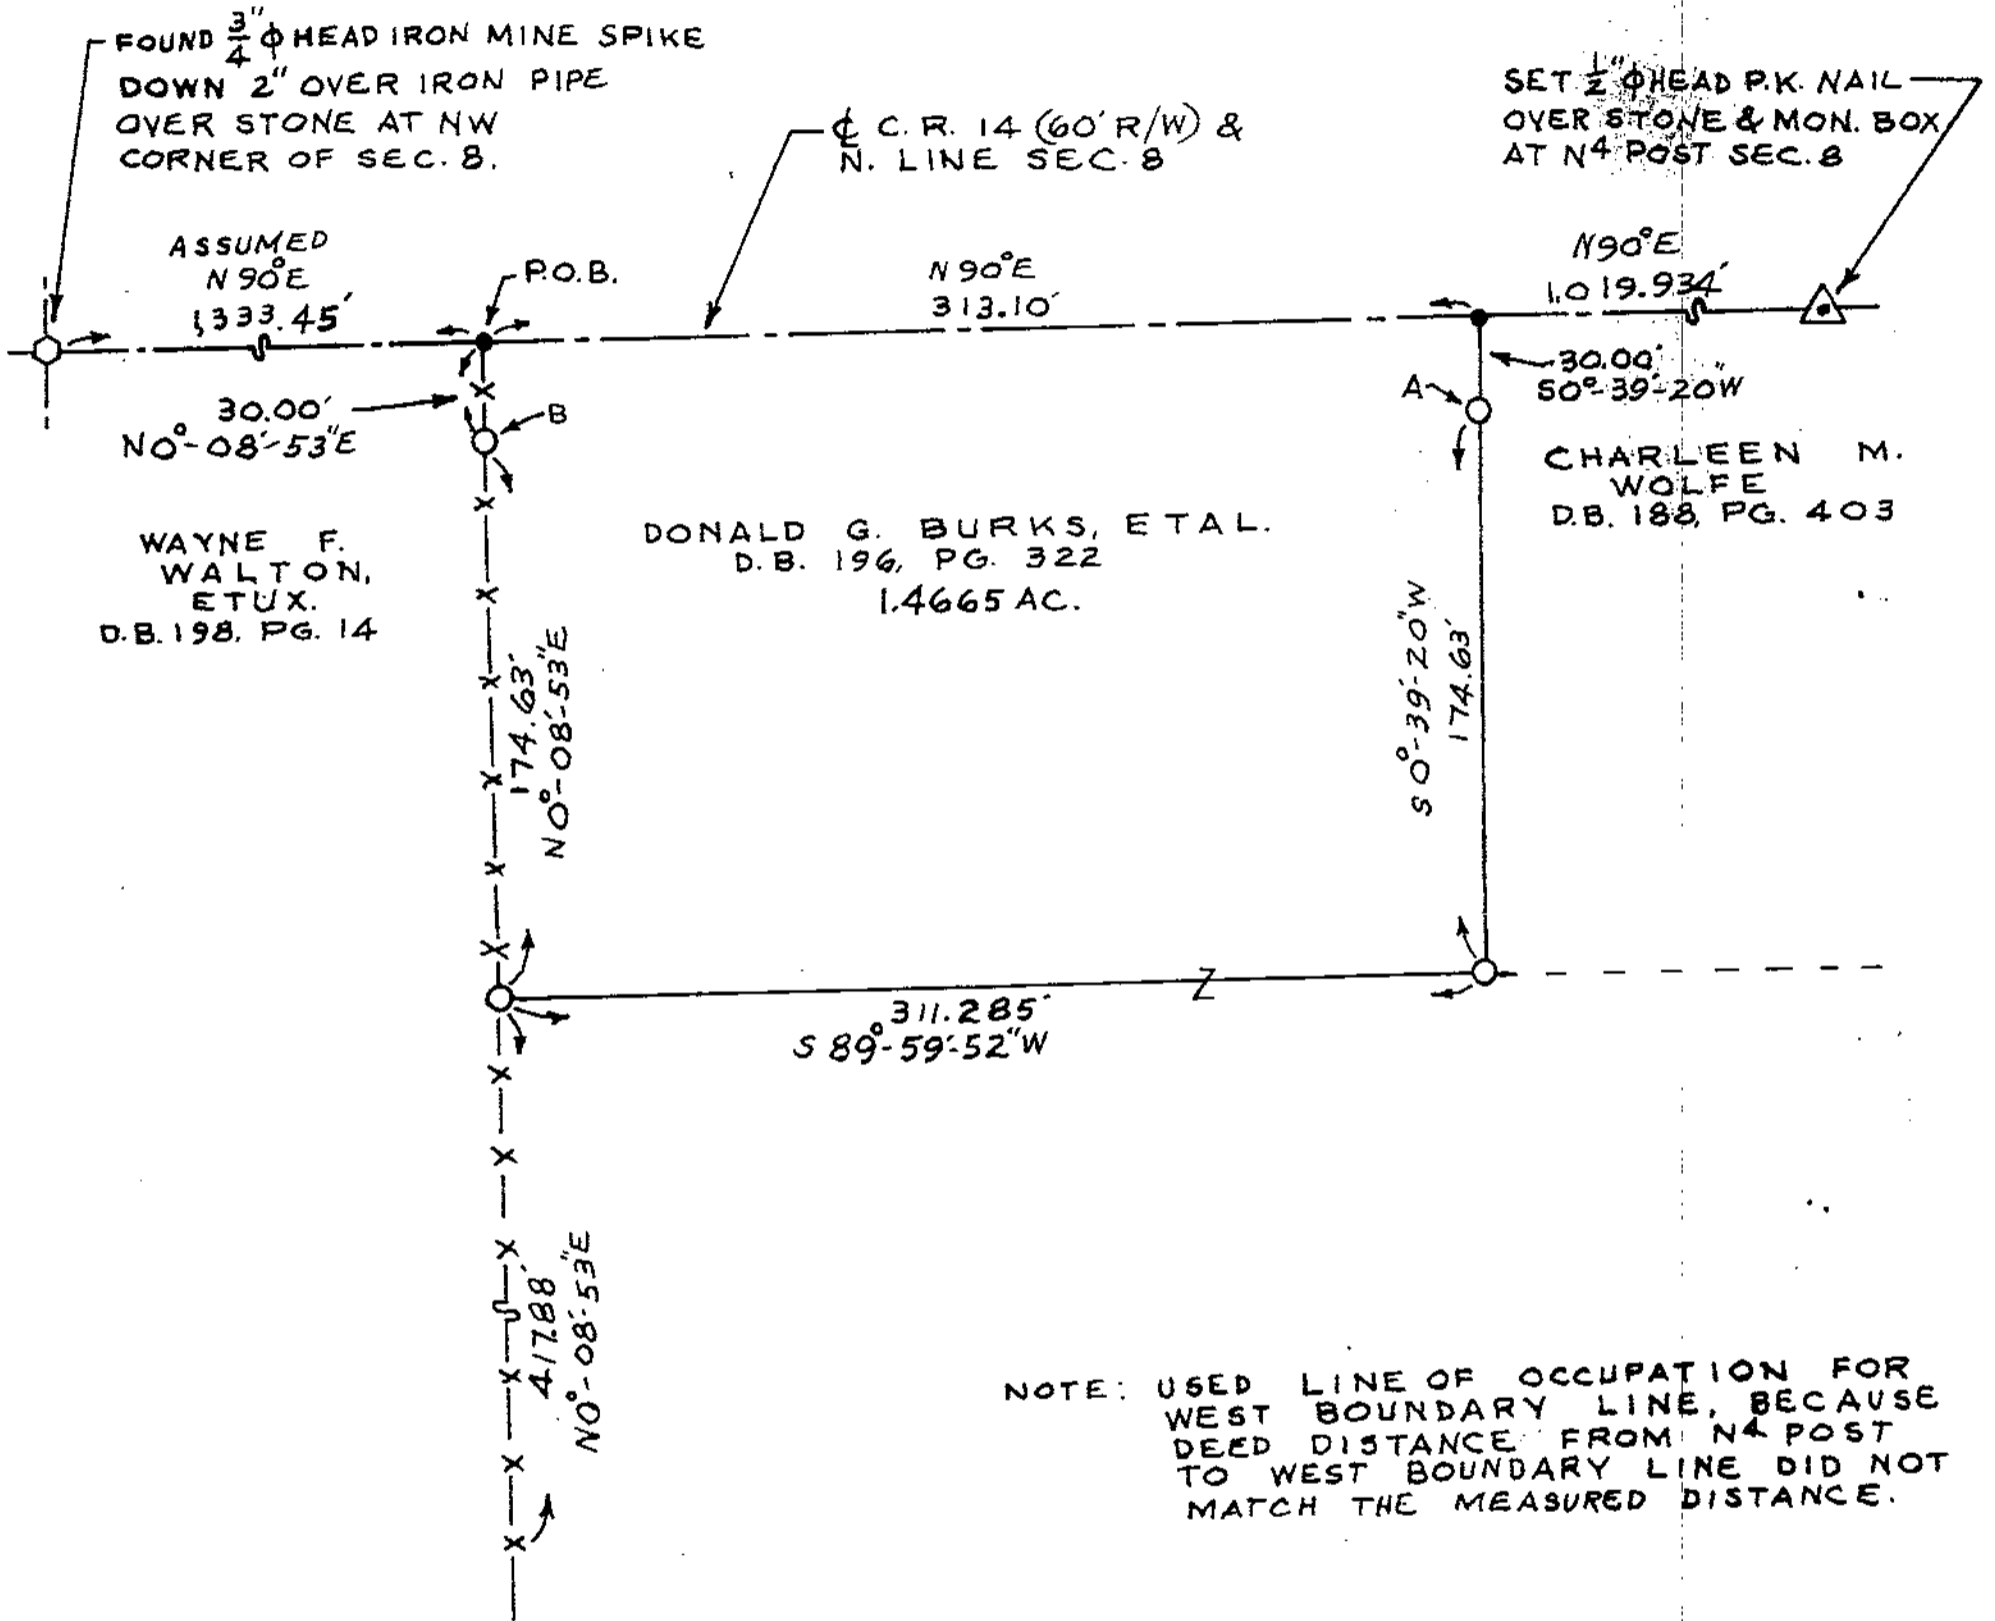 FOUND 3/4" ϕ HEAD IRON MINE SPIKE
DOWN 2" OVER IRON PIPE
OVER STONE AT NW
CORNER OF SEC. 8.
℄ C. R. 14 (60' R/W) &
N. LINE SEC. 8
SET 1/2" ϕ HEAD P.K. NAIL
OVER STONE & MON. BOX
AT N4 POST SEC. 8
ASSUMED
N 90°E
1,333.45'
P.O.B.
N 90°E
313.10'
N90°E
1,019.934'
30.00'
N0°-08'-53"E
B
A
30.00'
S0°-39'-20"W
WAYNE F.
WALTON,
ETUX.
D.B. 198, PG. 14
DONALD G. BURKS, ETAL.
D. B. 196, PG. 322
1.4665 AC.
CHARLEEN M.
WOLFE
D.B. 188, PG. 403
174.63'
N0°-08'-53"E
S 0°-39'-20"W
174.63'
Z
311.285'
S 89°-59'-52"W
417.88'
N0°-08'-53"E
NOTE: USED LINE OF OCCUPATION FOR
WEST BOUNDARY LINE, BECAUSE
DEED DISTANCE FROM N4 POST
TO WEST BOUNDARY LINE DID NOT
MATCH THE MEASURED DISTANCE.